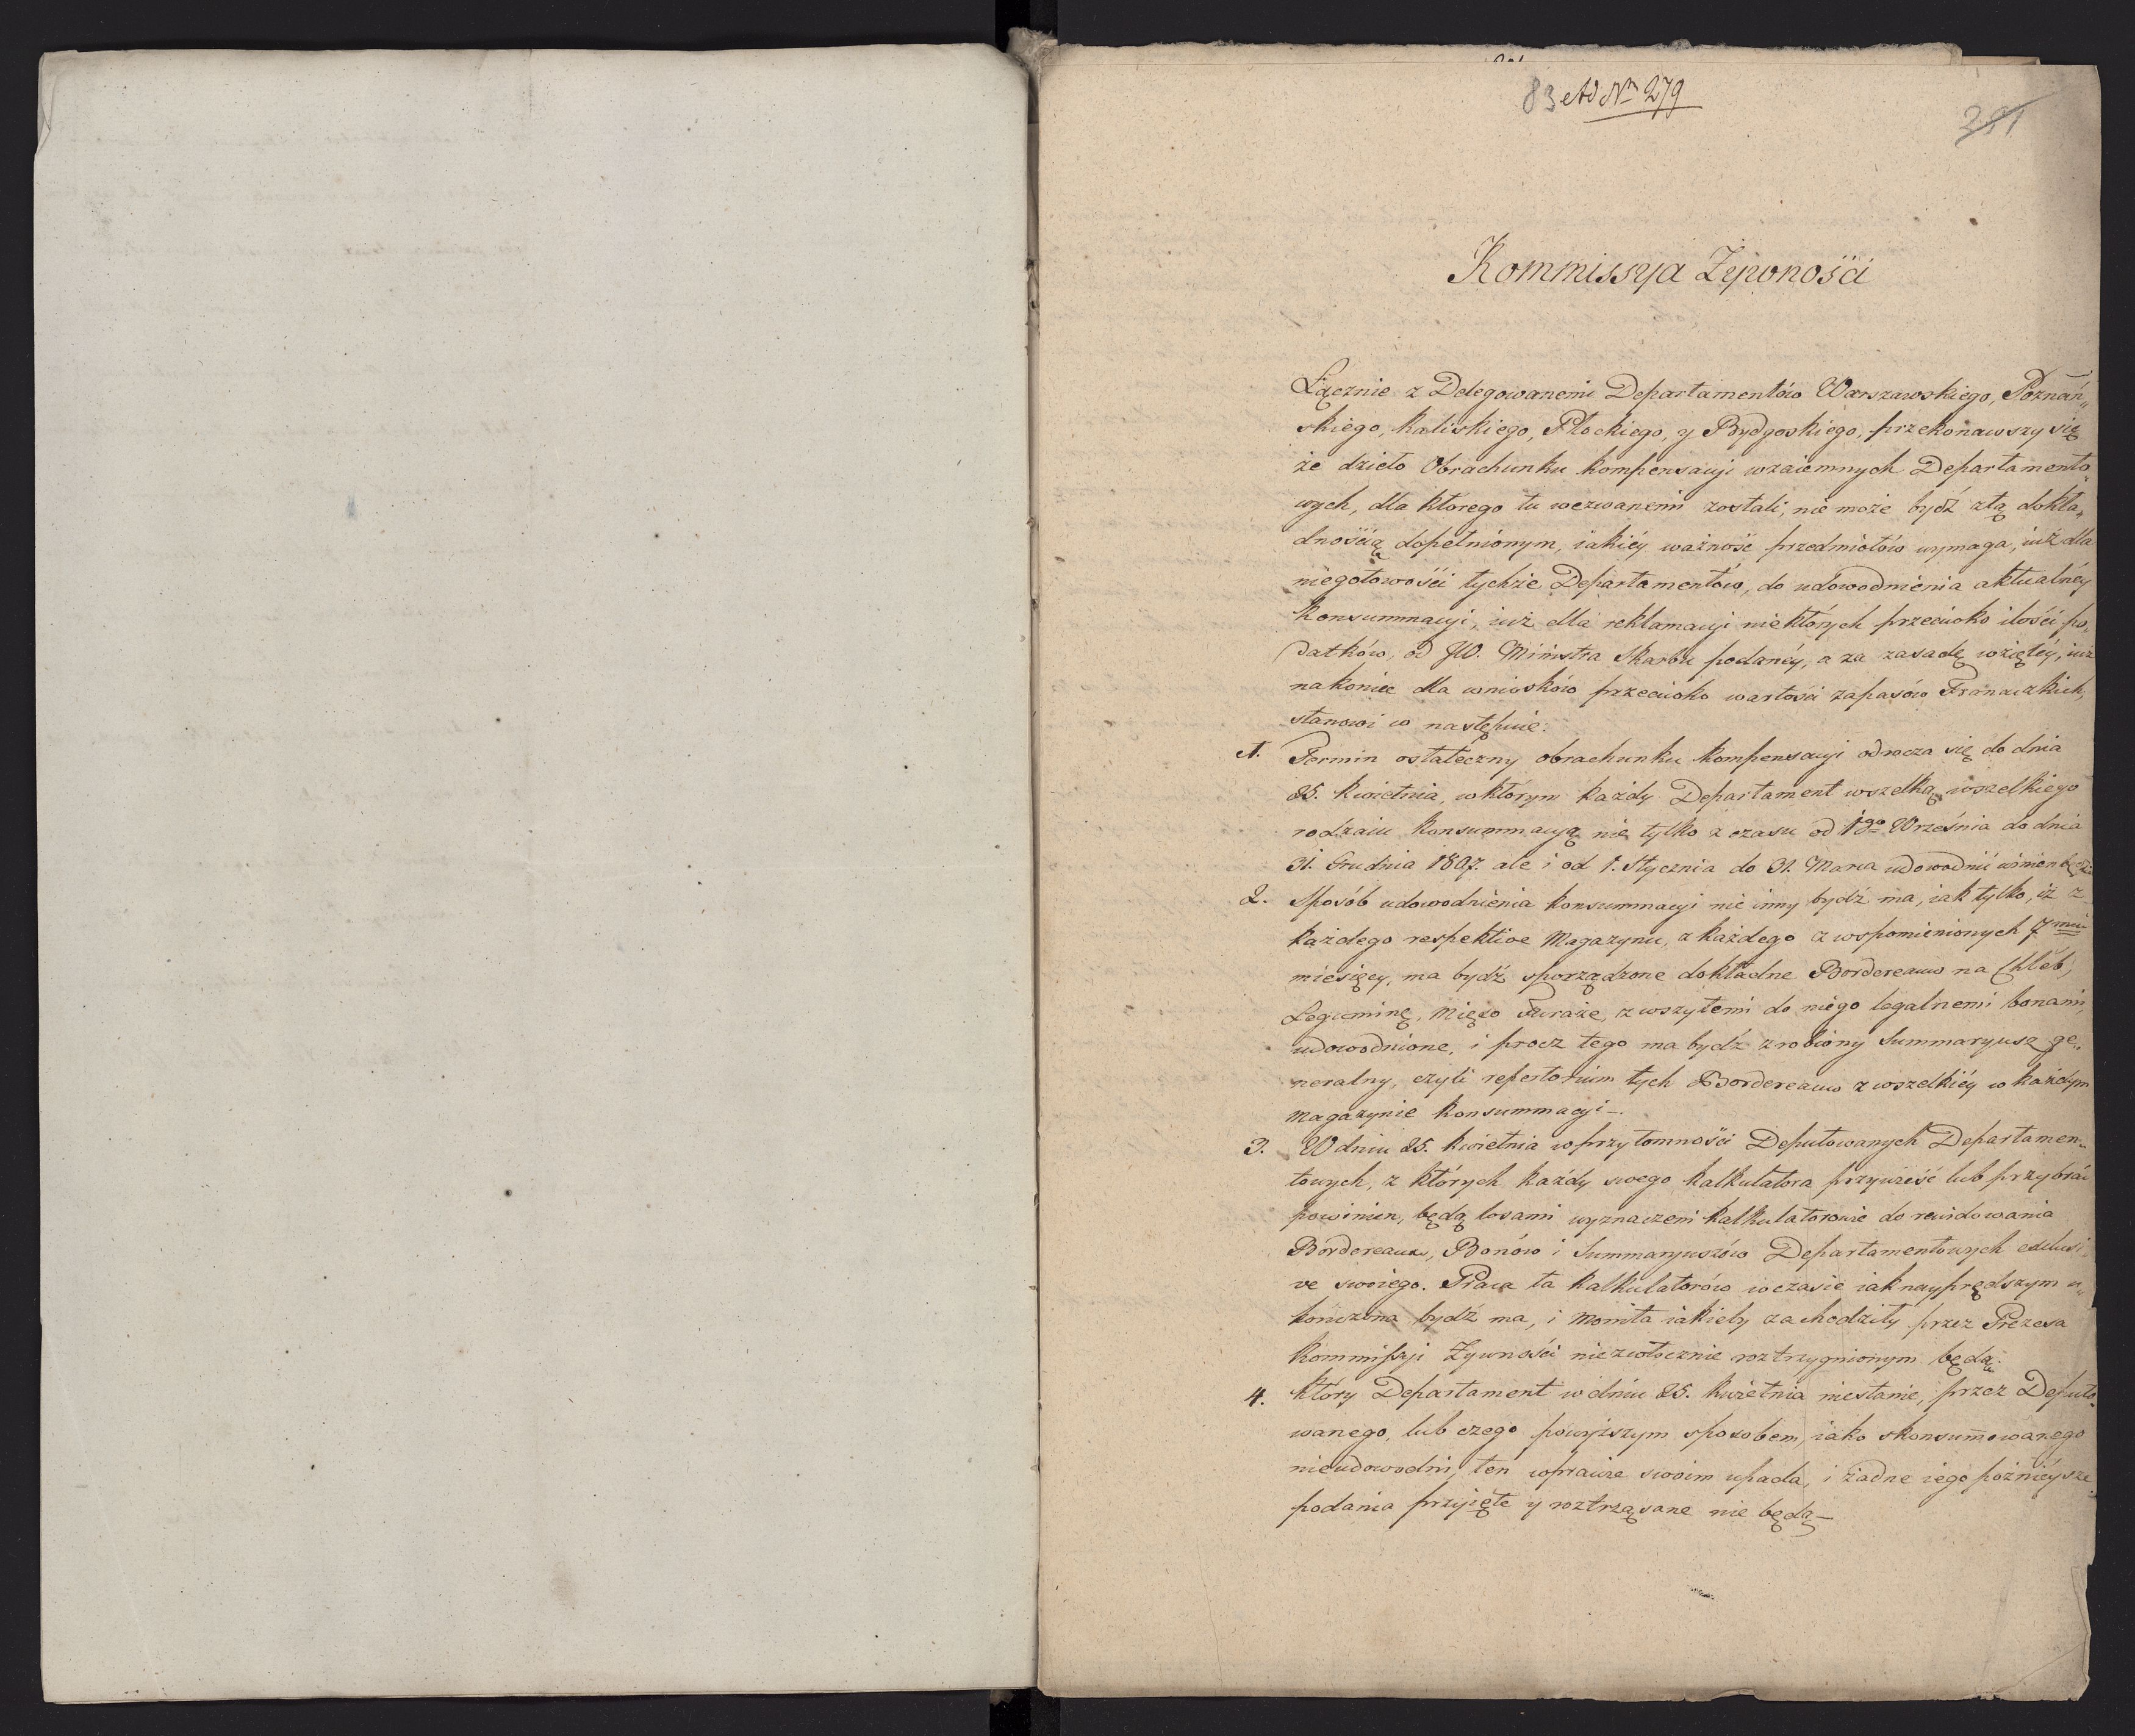 83 Ad Nm 279
291
Kommissyia Żywnośći
Łącznie z Delegowanemi Departamentów Warszawskiego, Poznań„
skiego, Kaliskiego, Płockiego, y Bydgoskiego, przekonawszy się
że dzieło Obrachunku kompensacyi wzaiemnych Departamento„
wych, dla ktorego tu wezwanemi zostali, nie może bydź ztą dokła„
dnośćią dopełnionym, iakiéy ważność przedmiotów wymaga, iuż dla
niegotowośći tychże Departamentów, do udowodnienia aktualnéy
Konsummacyi, iuż dla reklamacyi niektórych przeciwko ilośći po„
datków, od JW. Ministra Skarbu podanéy, a za zasadę wziętéy, iuż
nakoniec dla wniosków przeciwko wartośći zapasów Francuzkich,
stanowi w następuie:
1. Termin ostateczny obrachunku kompensacyi odracza się do dnia
25. Kwietnia, w którym każdy Departament wszelką wszelkiego
rodzaiu Konsummacyą nie tylko z czasu od 1go Września do dnia
31. Grudnia 1807. ale i od 1. Stycznia do 31. Marca udowodnić winien będzie
2. Sposób udowodnienia konsummacyi nie inny bydź ma, iak tylko, iż z
każdego respektive Magazynu, z każdego z wspomienionych 7miu
miesięcy, ma bydź sporządzone dokładne Bordereaux na Chléb,
Leguminę, Mięso Furaże, z wszytemi do niego legalnemi bonami,
udowodnione, i procz tego ma bydź zrobiony Summaryusz ge„
neralny, czyli repertorium tych Bordereaux z wszelkiéy w każdym
Magazynie konsummacyi —.
3. W dniu 25. Kwietnia w przytomnośći Deputowanych Departamen„
towych, z których każdy swego kalkulatora przywieść lub przybrać
powinien, będą losami wyznaczeni Kalkulatorowie do rewidowania
Bordereaux, Bonów i Summaryuszów Departamentowych exclusi
ve swoiego. Praca ta kalkulatorów w czasie iak nayprędszym u„
kończona bydź ma, i Monita iakieby zachodziły przez Prezesa
Kommissyi Żywnośći niezwłocznie roztrzygnionym będą.
4. Który Departament w dniu 25. Kwietnia niestanie, przez Deputo„
wanego, lub czego powyższym sposobem, iako skonsummowanego
nieudowodni, ten w prawie swoim upada, i żadne iego poźniéysze
podania przyięte y roztrząsane nie będą —